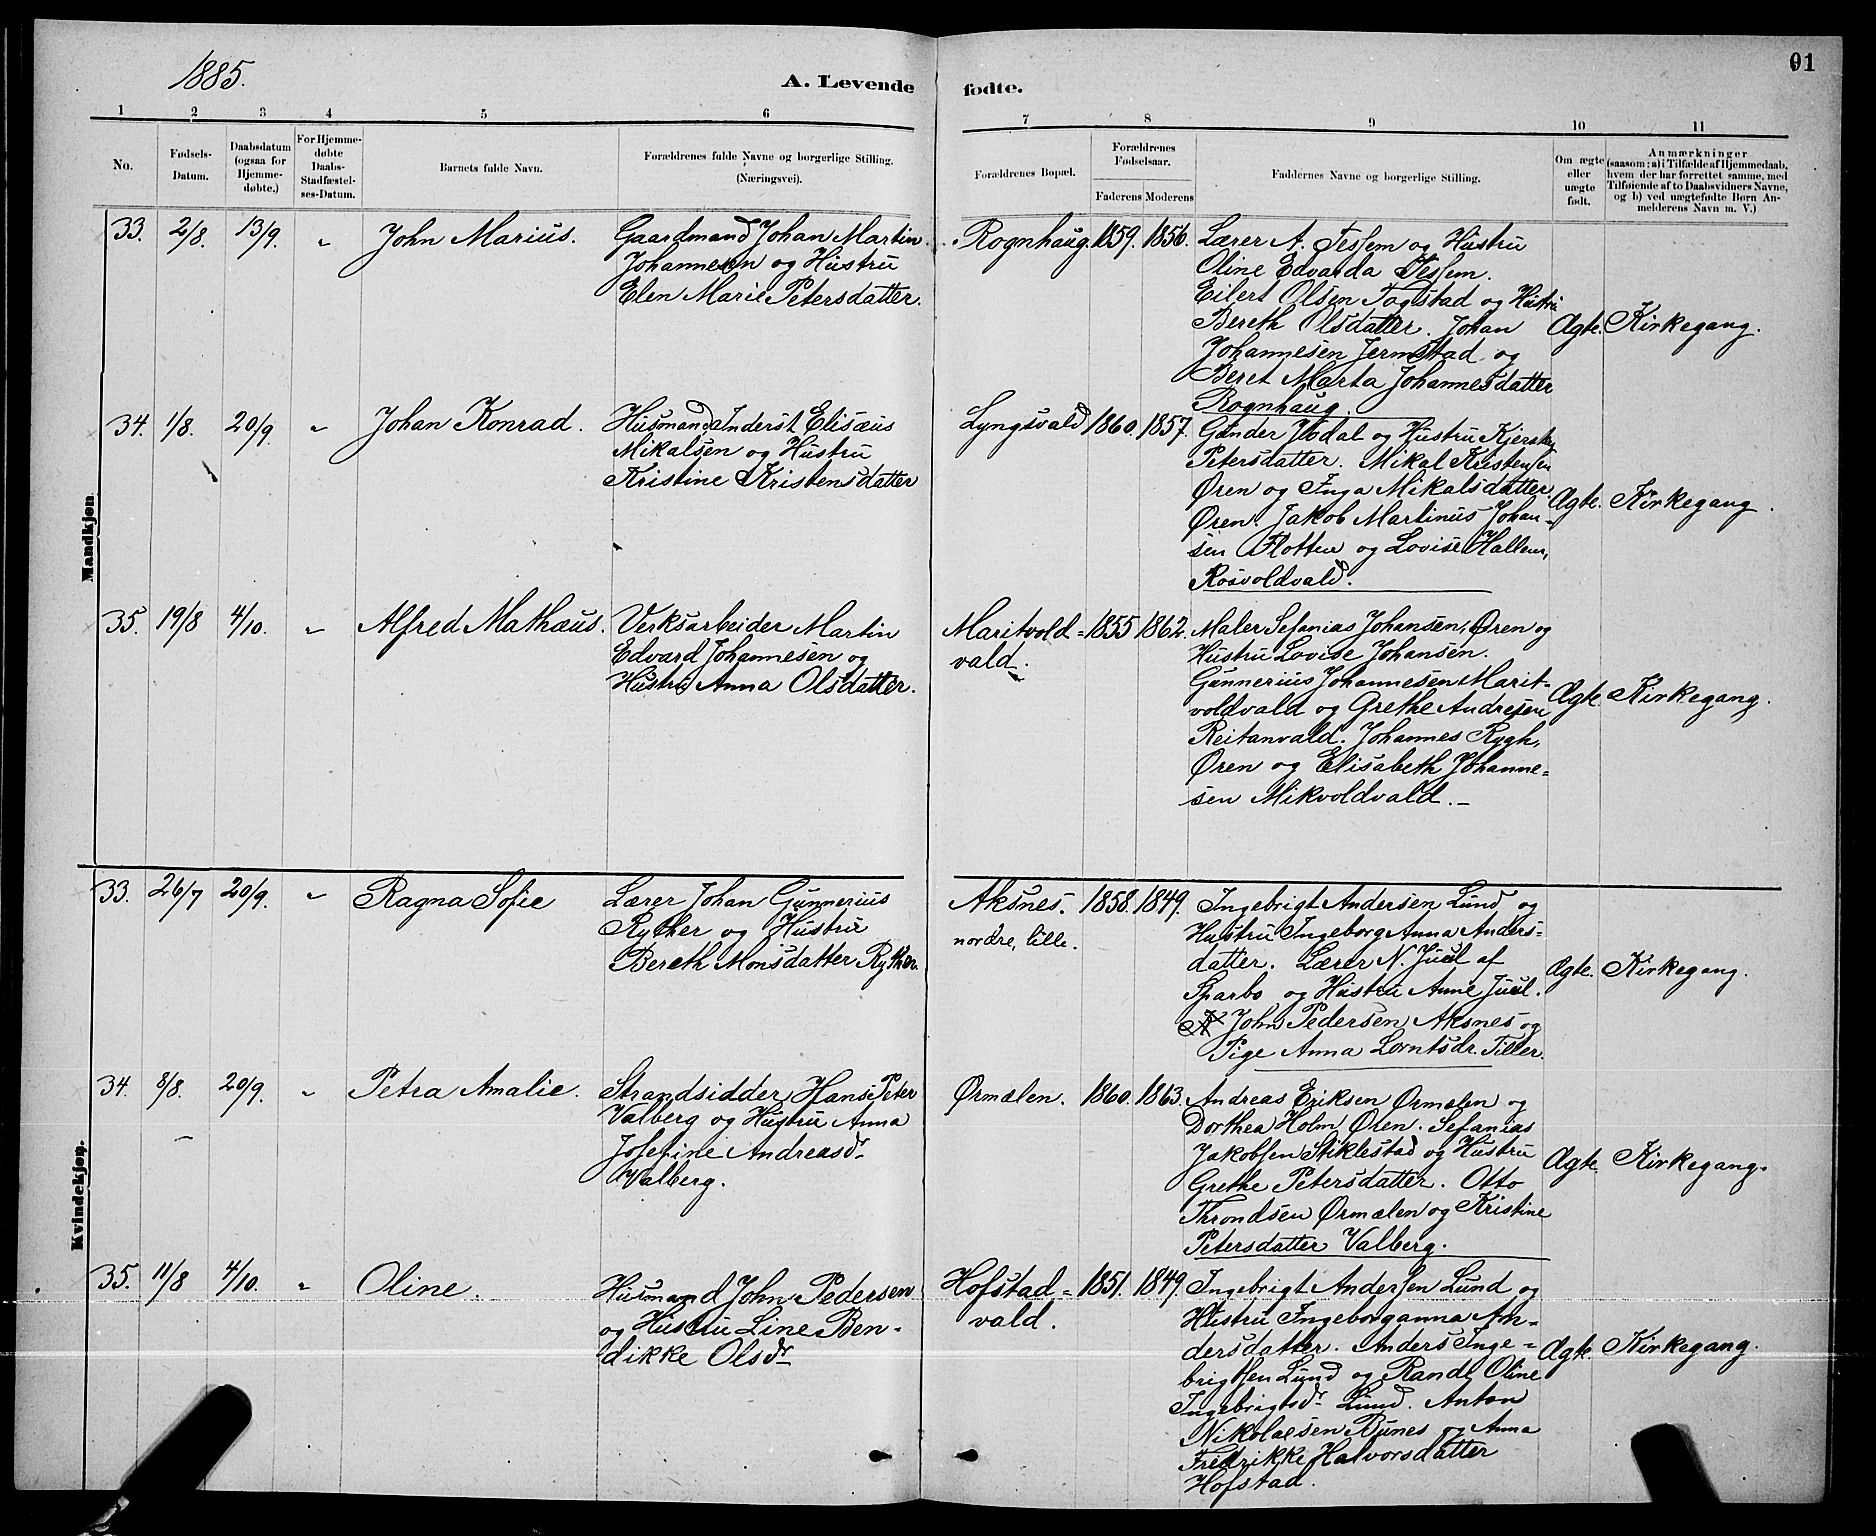 1885.
A. Levende
fødte.
91
1 2 3 4 5 6 7 8 9 10 11
No.
Fødsels-
Datum.
Daabsdatum
(ogsaa for
Hjemme-
døbte.)
For Hjemme-
døbte
Daabs-
Stadfæstel-
ses-Datum.
Barnets fulde Navn.
Forældrenes fulde Navne og borgerlige Stilling.
(Næringsvei).
Forældrenes Bopæl.
Forældrenes
Fødselsaar.
Faderens Moderens
Faddernes Navne og borgerlige Stilling.
Om ægte
eller
uægte
født.
Anmærkninger
(saasom: a) i Tilfælde af Hjemmedaab,
hvem der har forrettet samme, med
Tilføiende af to Daabsvidners Navne,
og b) ved uægtefødte Børn An-
melderens Navn m. V.)
Mandkjøn.
33. 2/8. 13/9. " John Marius.
Gaardmand Johan Martin
Johannesen og Hustru
Elen Marie Petersdatter.
Rognhaug. 1859. 1856.
Lærer A. Tessem og Hustru
Oline Edvarda Tessem.
Eilert Olsen Togstad og Hustru
Bereth Olsdatter. Johan
Johannesen Jermstad og
Beret Marta Johannesdatter
Rognhaug.
Ægte. Kirkegang.
34. 1/8. 20/9. " Johan Konrad.
Husmand, Inderst Elisæus
Mikalsen og Hustru
Kristine Kristensdatter
Lyngsvald 1860. 1857.
Gunder Ydal og Hustru Kjersti
Petersdatter. Mikal Kristensen
Øren og Inga Mikalsdatter
Øren. Jakob Martinus Johan-
sen Flotten og Lovise Hallem,
Rosvoldvald.
Ægte. Kirkegang.
35. 19/8 4/10. " Alfred Mathæus.
Verksarbeider Martin
Edvard Johannesen og
Hustru Anna Olsdatter.
Maritvold-
vald.
1855 1862.
Maler Sefanias Johansen, Øren og
Hustru Lovise Johansen.
Gunnerius Johannesen Marit-
voldvald og Grethe Andresen
Reitanvald. Johannes Rygh,
Øren og Elisabeth Johanne-
sen Mikvoldvald.
Ægte. Kirkegang.
Kvindekjøn.
33. 26/7 20/9. " Ragna Sofie
Lærer Johan Gunnerius
Ryther og Hustru
Bereth Monsdatter Ryther.
Aksnes.
nordre, lille.
1858. 1849.
Ingebrigt Andersen Lund og
Hustru Ingeborg Anna Anders-
datter. Lærer N. Juul af
Sparbo og Hustru Anne Juul.
John Pedersen Aksnes og
Pige Anna Lorntsdr. Tiller.
Ægte. Kirkegang.
34. 8/8. 20/9. " Petra Amalie.
Strandsidder Hans Peter
Valberg og Hustru Anna
Josefine Andreasdr
Valberg.
Ørmælen. 1860. 1863.
Andreas Eriksen Ørmælen og
Dorthea Holm Øren. Sefanias
Jakobsen Stiklestad og Hustru
Grethe Petersdatter. Otto
Throndsen Ørmælen og Kristine
Petersdatter Valberg.
Ægte. Kirkegang.
35. 11/8 4/10. " Oline.
Husmand John Pedersen
og Hustru Line Ben-
dikke Olsdr
Hofstad-
vald.
1851. 1849.
Ingebrigt Andersen Lund og
Hustru Ingeborganna An-
dersdatter. Anders Inge-
brigtsen Lund og Randi Oline
Ingebrigtsdr Lund. Anton
Nikolaesen Bunes og Anna
Fredrikke Halvorsdatter
Hofstad.
Ægte. Kirkegang.